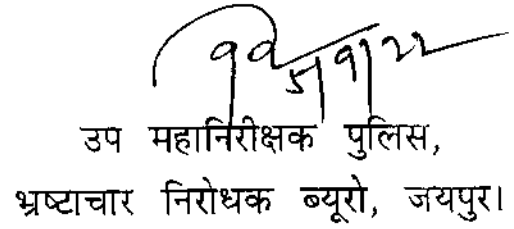 5/9/22
उप महानिरीक्षक पुलिस,
भ्रष्टाचार निरोधक ब्यूरो, जयपुर।